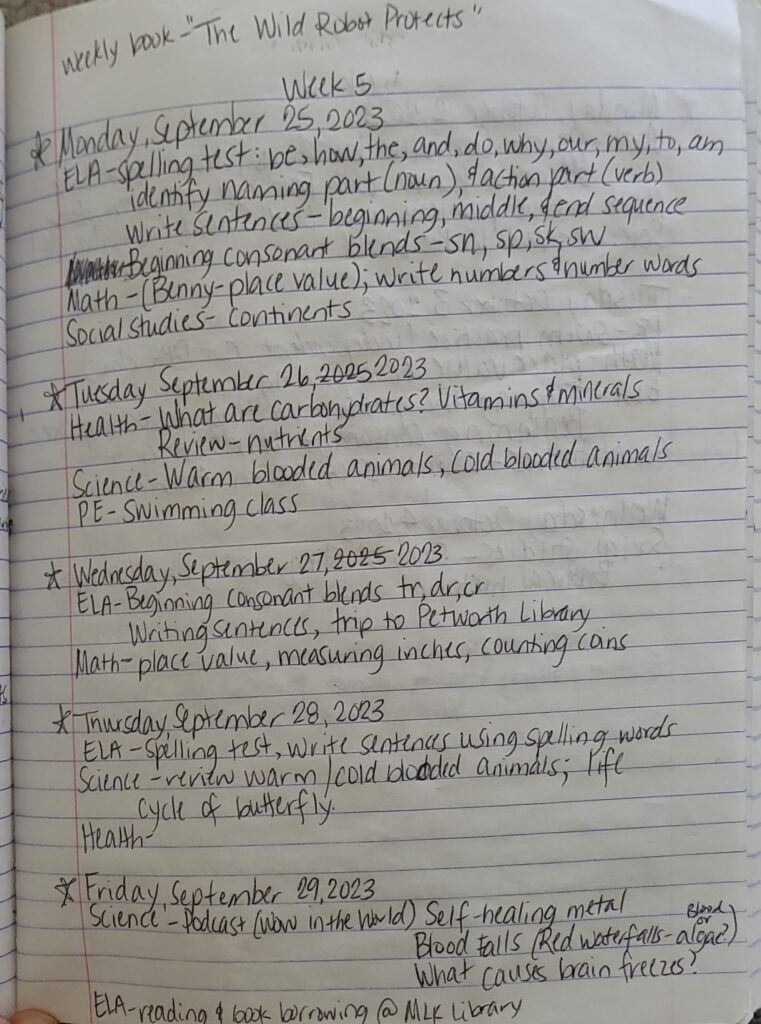 weekly book - "The Wild Robot Protects"
Week 5
* Monday, September 25, 2023
ELA - spelling test: be, how, the, and, do, why, our, my, to, am
identify naming part (noun), & action part (verb)
Write sentences - beginning, middle, & end sequence
Beginning consonant blends - sn, sp, sk, sw
Math - (Benny - place value); write numbers & number words
Social studies - continents
* Tuesday September 26, 2025 2023
Health - What are carbohydrates? Vitamins & minerals
Review - nutrients
Science - Warm blooded animals, cold blooded animals
PE - Swimming class
* Wednesday, September 27, 2025 2023
ELA - Beginning consonant blends tr, dr, cr
Writing sentences, trip to Petworth Library
Math - place value, measuring inches, counting coins
* Thursday, September 28, 2023
ELA - Spelling test, write sentences using spelling words
Science - review warm / cold blooded animals; life
cycle of butterfly.
Health -
* Friday, September 29, 2023
Science - Podcast (Wow in the World) Self-healing metal
Blood falls (Red waterfalls - Blood or algae?)
What causes brain freezes?
ELA - reading & book borrowing @ MLK Library